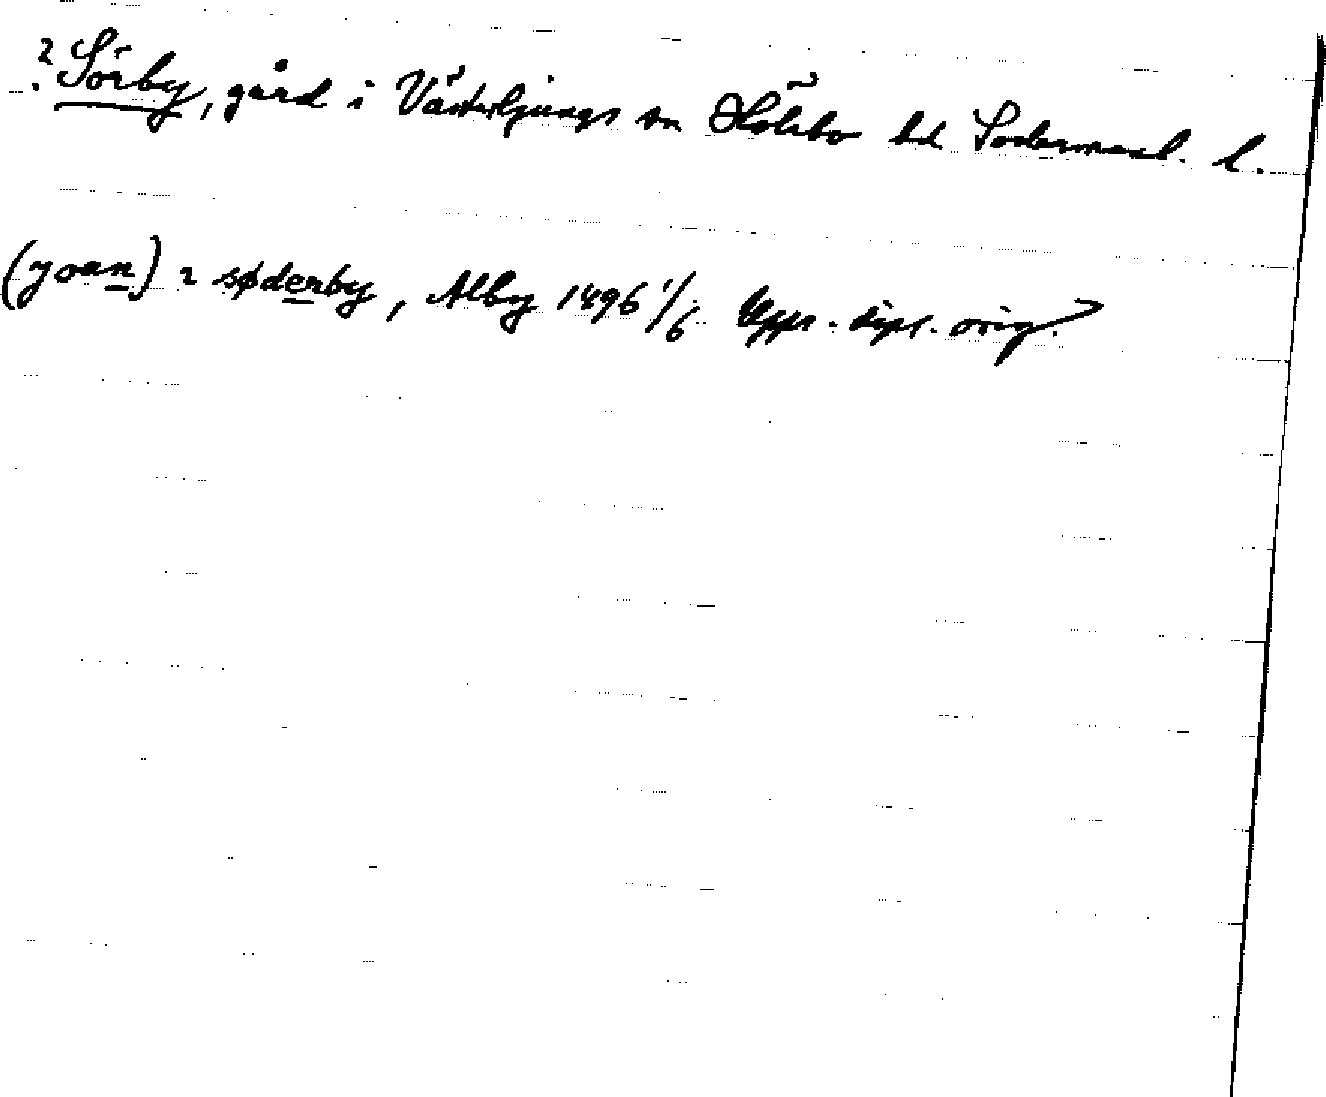 ? Sörby, gård i Västerljungs sn Hölebo hd Södermanl. l.
(joan) i søderby, Alby 1496 1/6 Upps. dipl. orig.